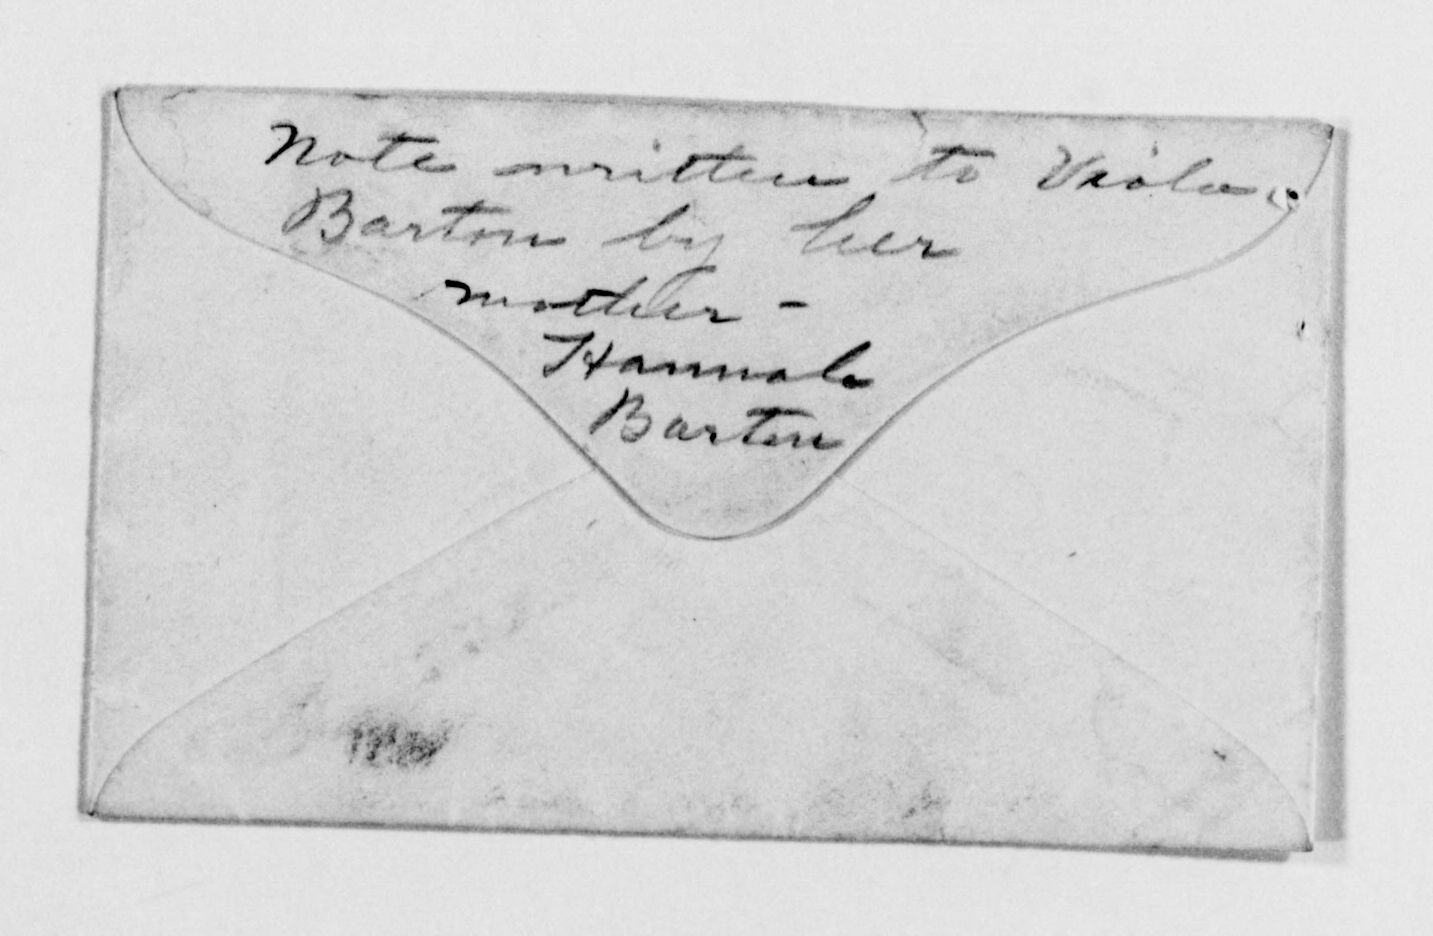 Note written to Viola
Barton by her
mother -
Hannah
Barton